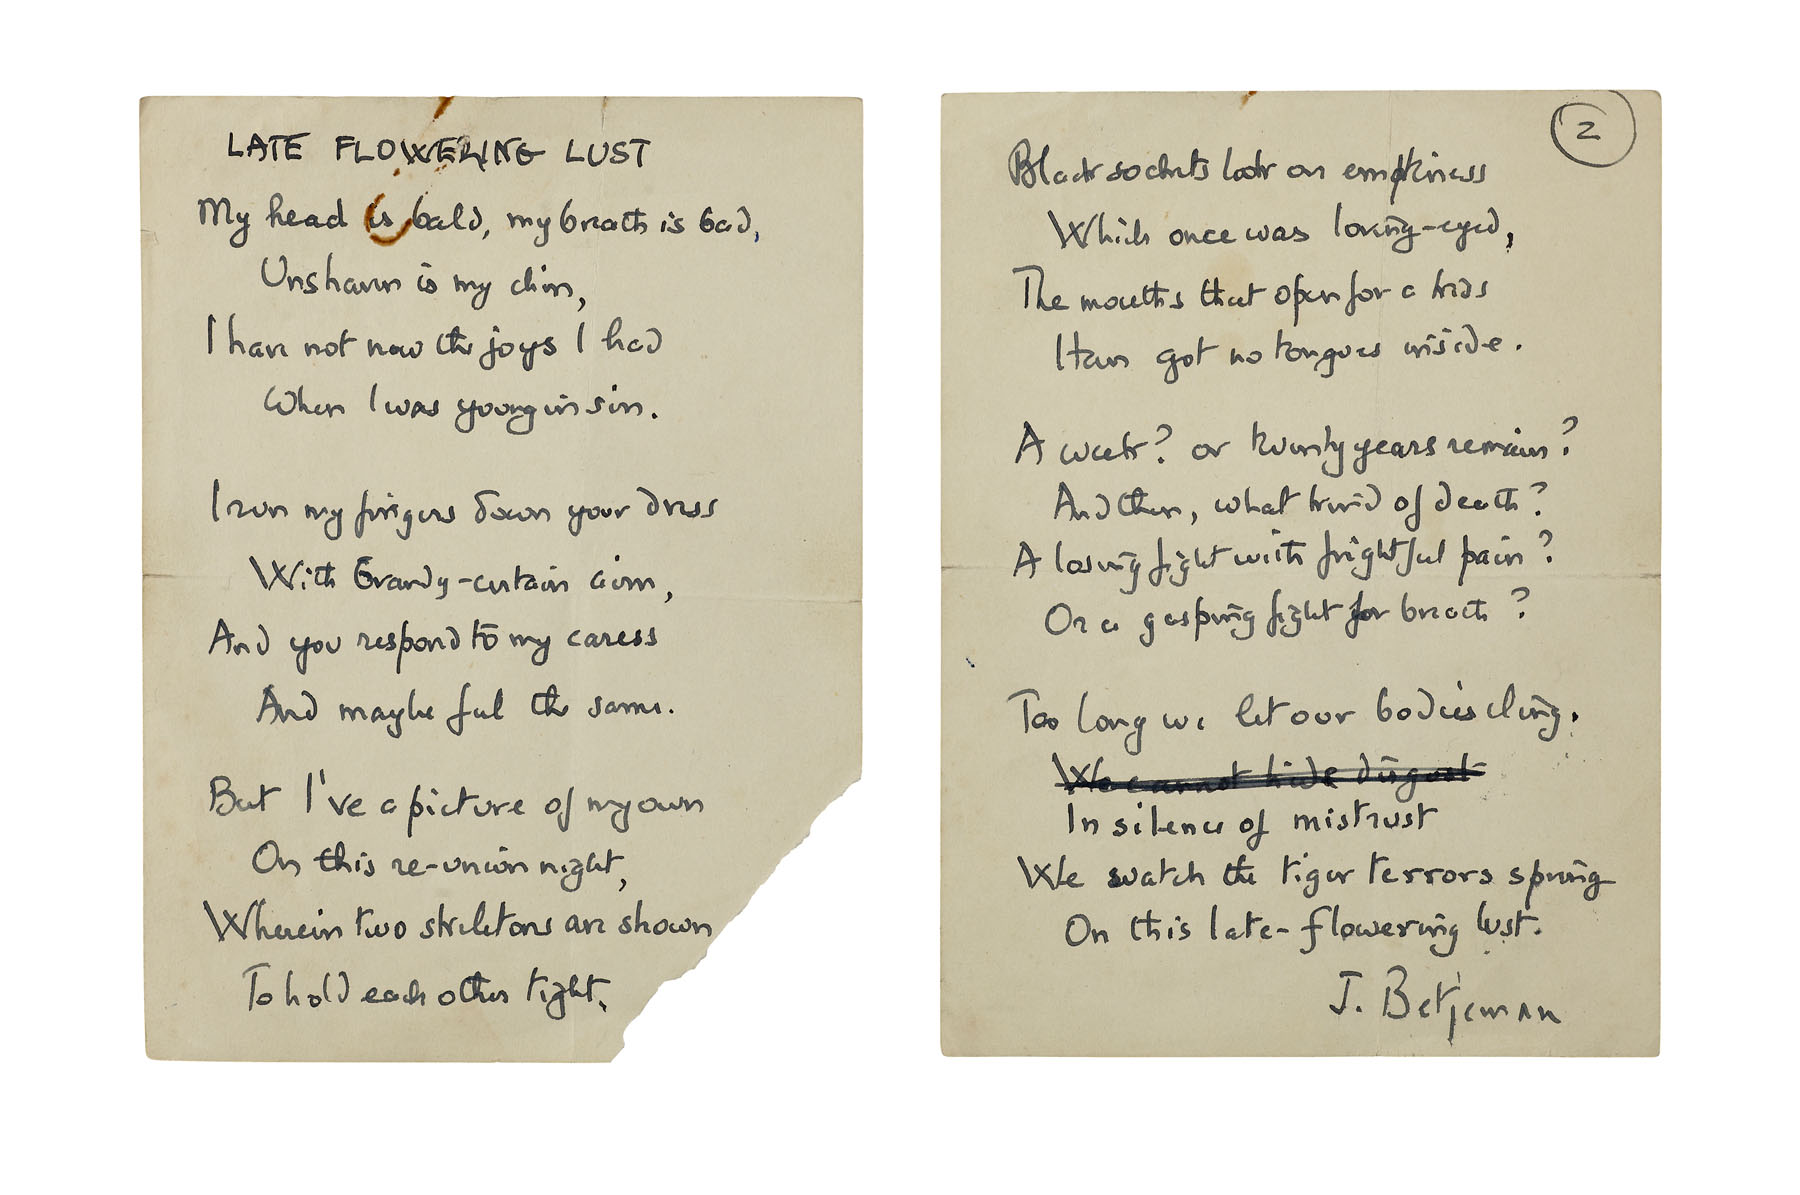 LATE FLOWERING LUST
My head is bald, my breath is bad,
Unshaven is my chin,
I have not now the joys I had
When I was young in sin.
I run my fingers down your dress
With brandy-certain aim,
And you respond to my caress
And maybe feel the same.
But I've a picture of my own
On this re-union night,
Wherein two skeletons are shown
To hold each other tight.
2
Black sockets look on emptiness
Which once was loving-eyed,
The mouths that open for a kiss
Have got no tongues inside.
A week? or twenty years remain?
And then, what kind of death?
A losing fight with frightful pain?
Or a gasping fight for breath?
Too long we let our bodies cling.
We cannot hide disgust
In silence of mistrust
We watch the tiger terrors spring
On this late-flowering lust.
J. Betjeman